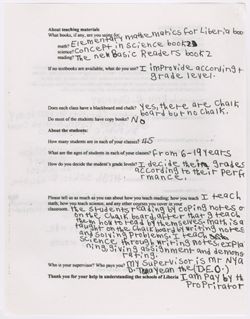 About teaching materials
What books, if any, are you using for:
math? Elementary mathematics for Liberia boo
science? Concept in Science book 2
reading? The new Basic Readers book 2
If no textbooks are available, what do you use? I improvide according +
grade level.
Does each class have a blackboard and chalk? yes, there are chalk
board but no chalk.
Do most of the students have copy books? No
About the students:
How many students are in each of your classes? 45
What are the ages of students in each of your classes? from 6-19 years
How do you decide the student's grade levels? I decide their grades
according to their perfo
rmance.
Please tell us as much as you can about how you teach reading; how you teach
math; how you teach science, and any other courses you cover in your
classroom. I teach
the students reading by coping notes o
on the chalk board after that I teach
them how to read by themselves, math is a
taught on the chalk board by writing notes
and solving problems, I teach
Science through writing notes, expla
ning, giving assignment and demons
rating.
Who is your supervisor? Who pays you? my supervisor is mr NYA
yean the (D.E.O.)
Thank you for your help in understanding the schools of Liberia I am Pay by the
Proprirator